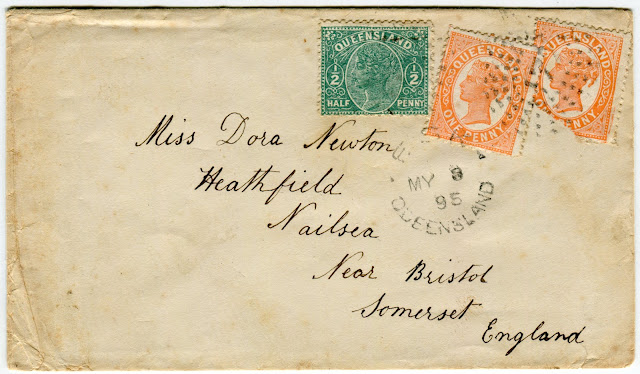 QUEENSLAND
1/2 1/2
HALF PENNY
QUEENSLAND
ONE PENNY
QUEENSLAND
PENNY
Miss Dora Newton
Heathfield
Nailsea
Near Bristol
Somerset
England
MY 8
95
QUEENSLAND